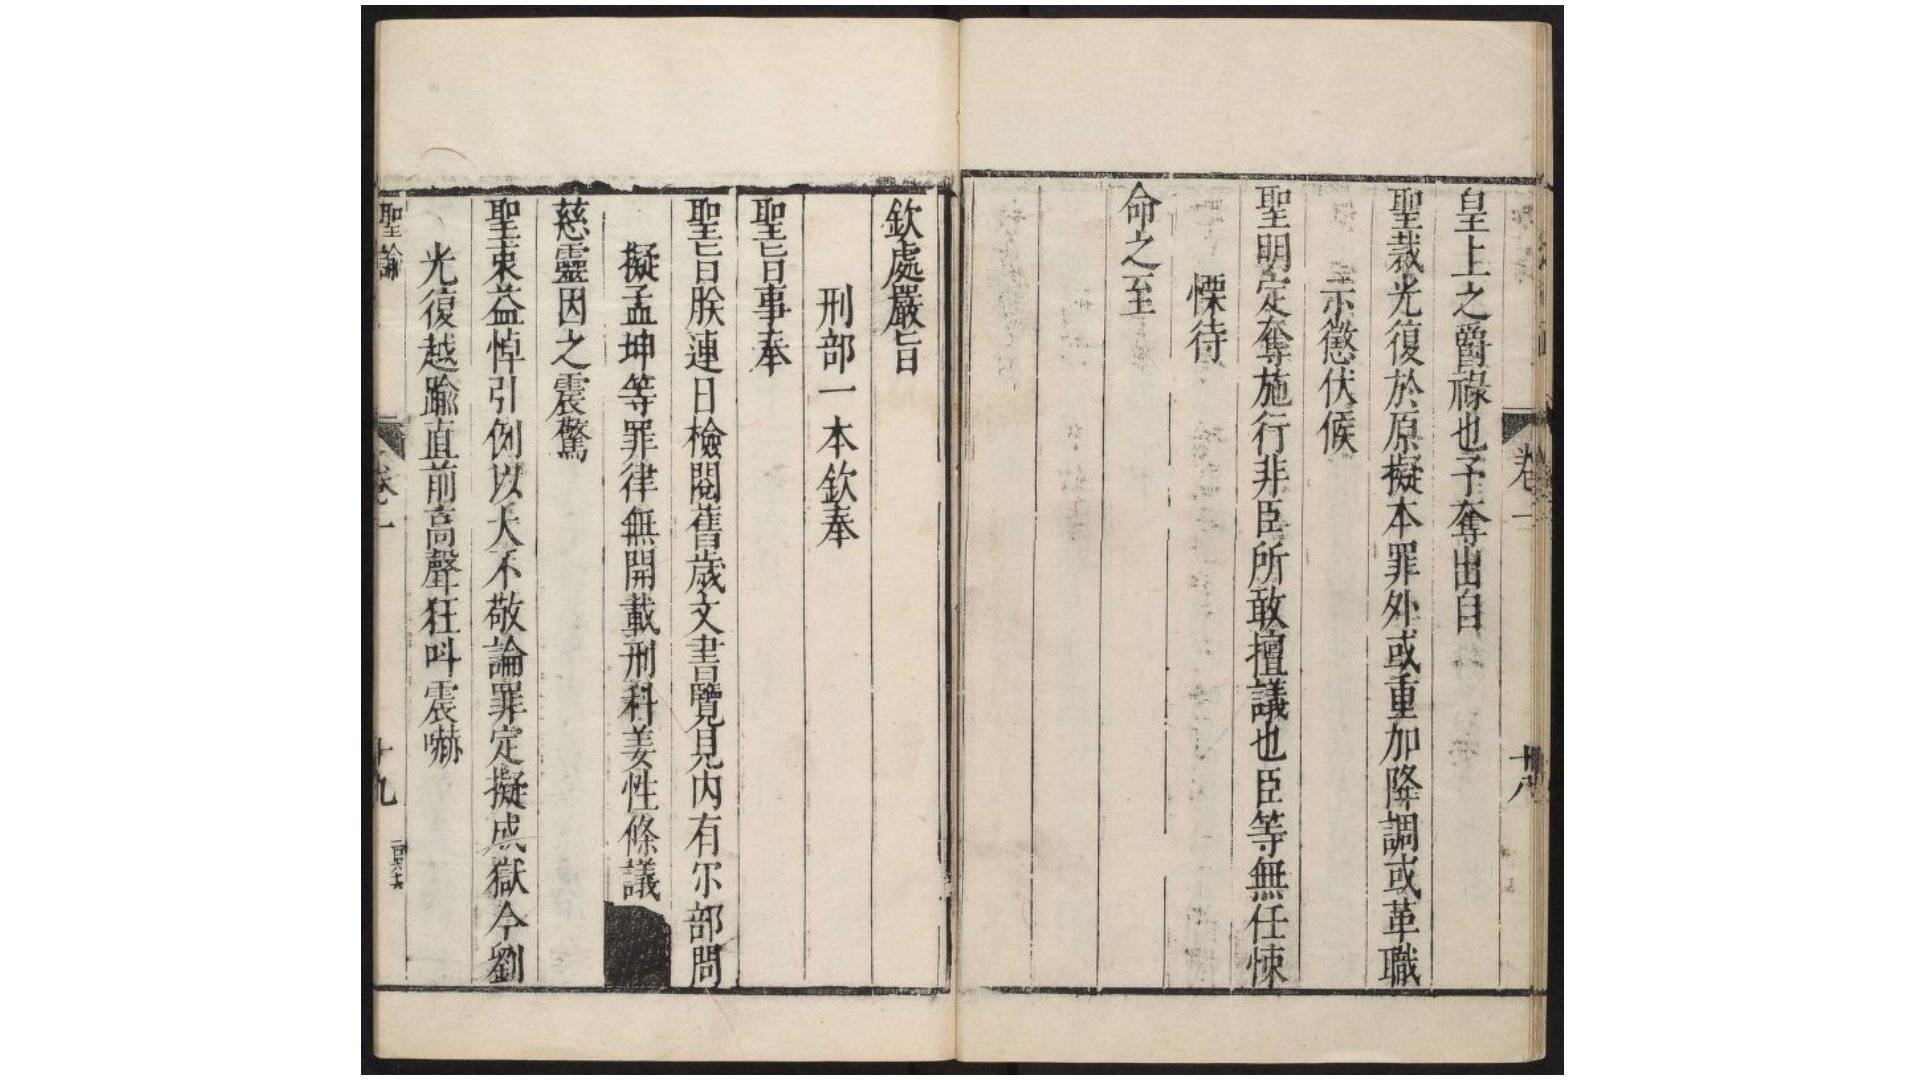 皇上之爵祿也予奪出自
聖裁光復於原擬本罪外或重加降調或革職
示懲伏候
聖明定奪施行非臣所敢擅議也臣等無任悚
慄待
命之至
卷一
十八
欽處嚴旨
刑部一本欽奉
聖旨事奉
聖旨朕連日檢閱舊歲文書覽見內有尔部問
擬孟坤等罪律無開載刑科姜性條議
慈靈因之震驚
聖衷益悼引例以大不敬論罪定擬成獄今劉
光復越踰直前高聲狂叫震嚇
聖論
卷一
十九